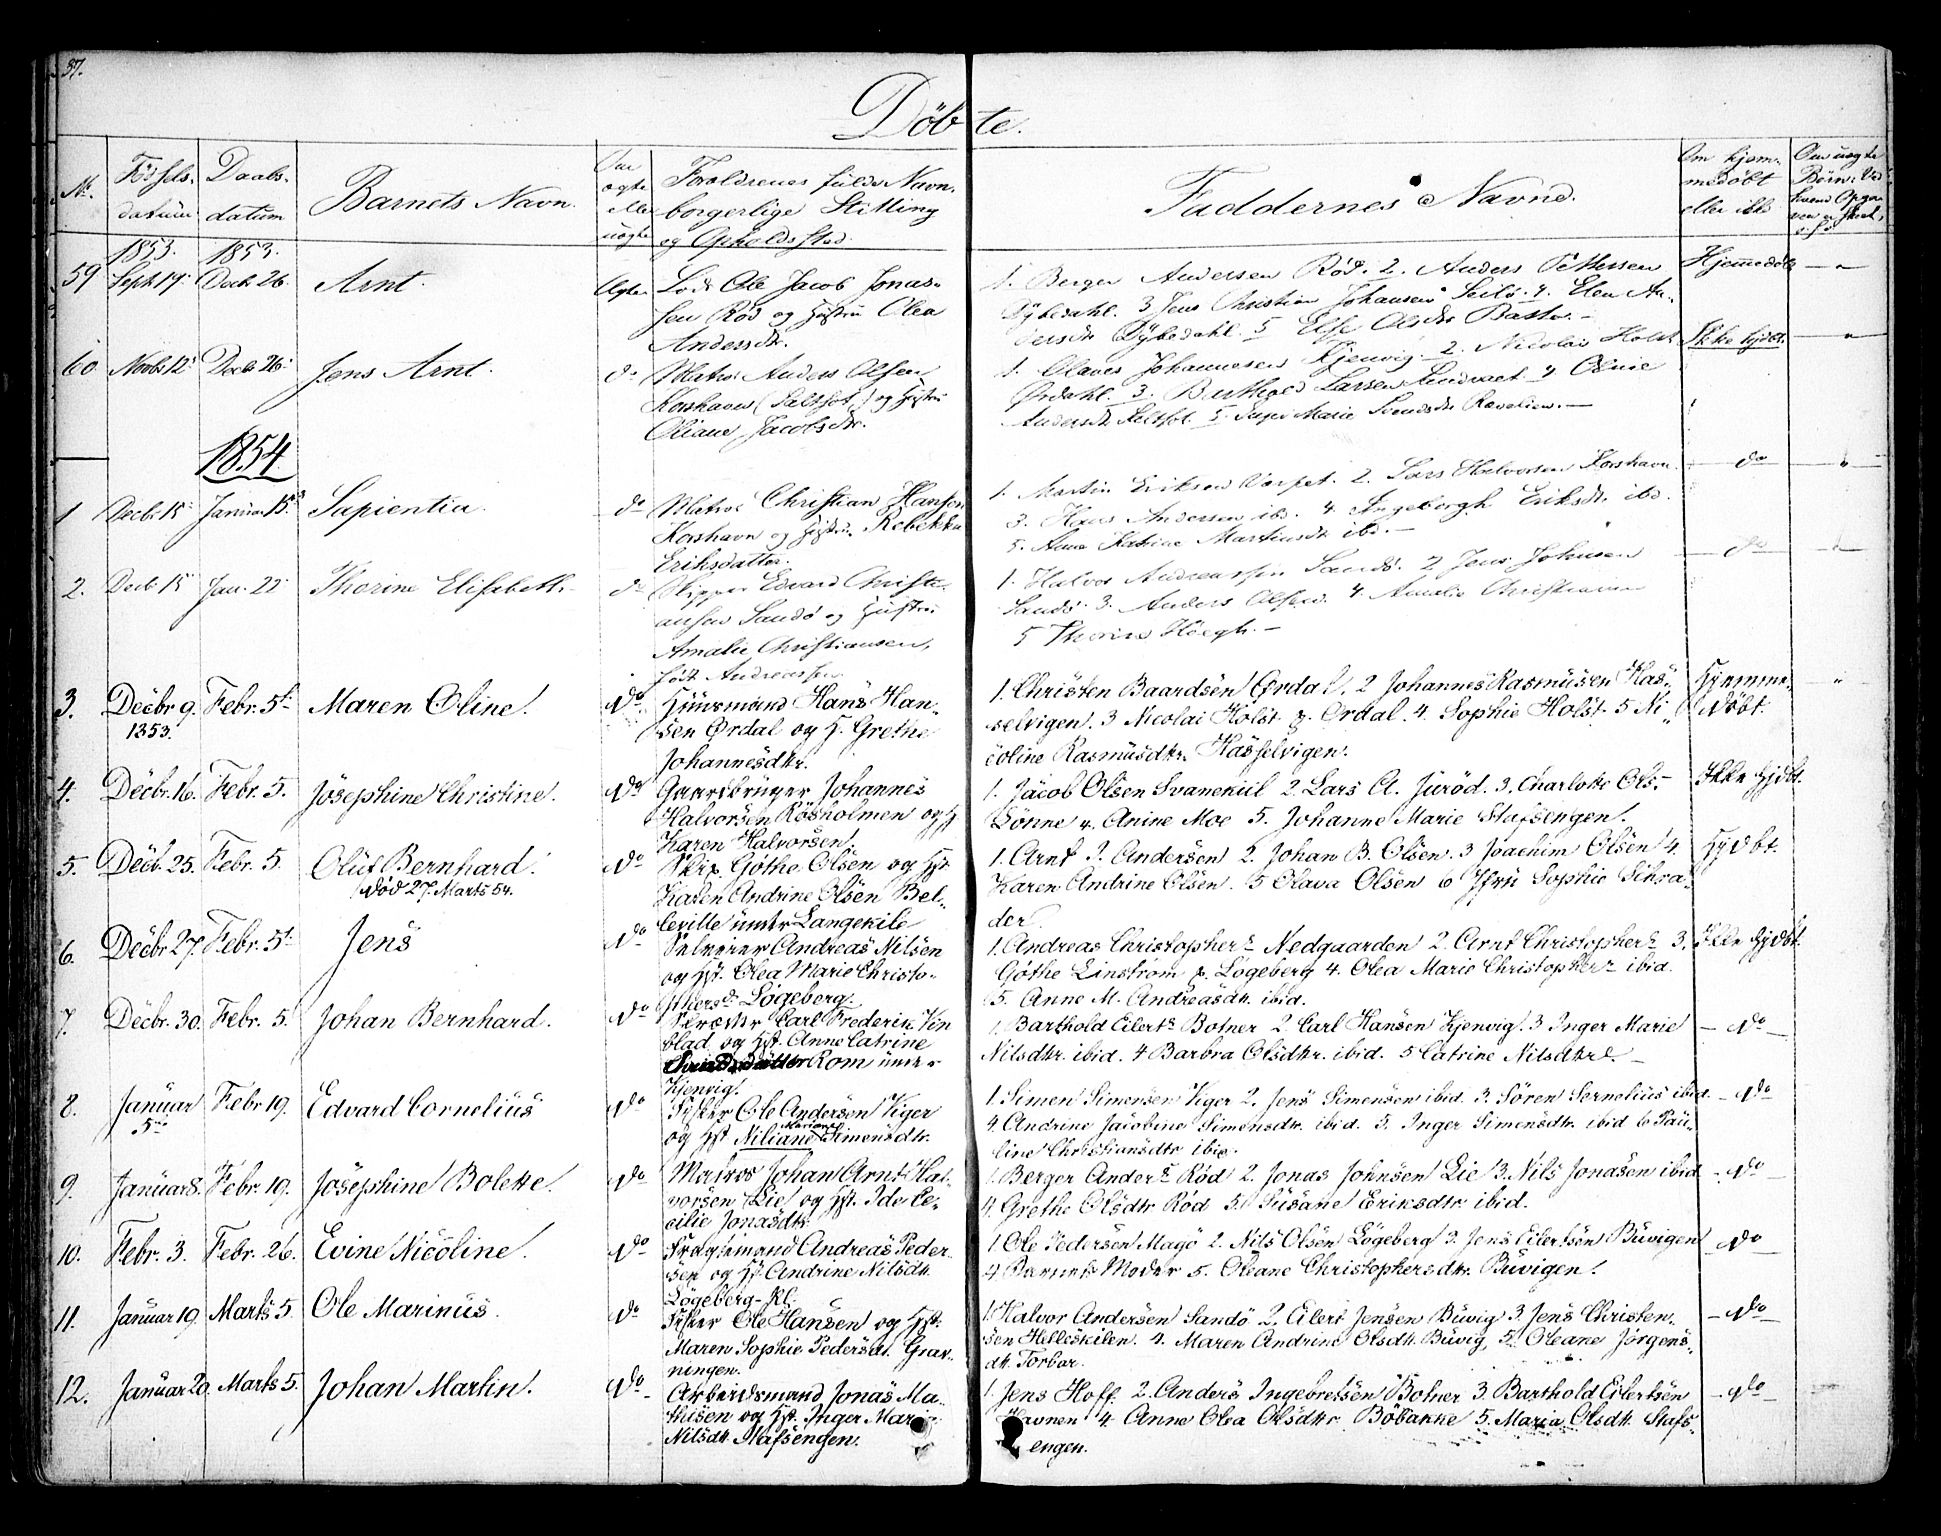 37.
Döbte.
No.
Födsels-
datum
Daabs-
datum
Barnets Navn.
Om
ægte
eller
uægte
Forældrenes fulde Navn,
borgerlige Stilling
og Opholdssted.
Faddernes Navne.
Om hjem-
medöbt
eller ikke
Om uægte
Börn. Ved
1853. 1853.
59 Septr 17. Decb. 26. Arnt.
Ægte Lods Ole Jacob Jonas-
sen Röd og Hustru Olea
Andersdtr.
1. Berger Andersen Röd. 2. Anders Pettersen
Dybedahl. 3 Jens Christian Johansen Seilö. 4. Elen An-
dersdtr Dybedahl. 5 Else Olsdtr Basto. –
Hjemmedöbt
60 Novb. 12. Decb. 26. Jens Arnt.
do Matros Anders Olsen
Korshavn (Saltbot) og Hustru
Oliane Jacobsdtr.
1. Olaves Johannesen Kjenvig. 2. Nicolai Holst
Ørdahl. 3. Barthold Larsen 4
Andersdtr 5. Inger Marie Svendsdtr
Ikke hjdbt.
1854.
1 Decbr 15 Januar 15. Sapientia.
do Matros Christian Hansen
Korshavn og Hustru Rebekka
Eriksdatter.
1. Martin Eriksen Vorpet. 2. Lars Halvorsen Korshavn.
3. Hans Andersen ibd. 4. Ingeborgh Eriksdtr. ibd.
5. Anne Katrine Martinsdtr ibd. –
do
2. Decb. 15 Jan. 22 Thorine Elisabeth.
do Skipper Edvard Christi-
ansen Sandö og Hustru
Amalie Christiansen,
födt Andreassen
1. Halvor Andreassen Sandö. 2 Jens Johnsen
Sandö. 3. Anders Olsen. 4. Amalie Christiansen
5 Thorine Höegh. –
do
3. Decbr 9. Febr. 5te Maren Oline.
1853.
do Huusmand Hans Han-
sen Ørdal og H. Grethe
Johannesdtr.
1. Christen Baardsen Ørdal. 2 Johannes Rasmusen Has-
selvigen. 3 Nicolai Holst p. Ordal. 4. Sophie Holst. 5 Ni-
coline Rasmusdtr. Hasselvigen.
Hjemme-
döbt.
4. Decbr. 16. Febr. 5. Josephine Christine.
do Gaardbruger Johannes
Halvorsen Rösholmen og H
Karen Halvorsen.
1. Jacob Olsen Svanekiil 2. Lars A. Jüröd. 3. Charlotte Ols-
Sönne 4. Anine Moe 5. Johanne Marie Stafsengen.
Ikke Hjdbt.
5. Decbr. 25. Febr. 5. Oluf Bernhard.
död 27. Marts 54.
do Skip. Göthe Olsen og Hst
Karen Andrine Olsen Bel-
leville under Langekile
1. Arnt J. Andersen 2. Johan B. Olsen. 3 Joachim Olsen 4.
Karen Andrine Olsen. 5 Olava Olsen 6 Jfru Sophie Schra-
der.
Hjdbt.
6. Decbr 27. Febr. 5te Jens
do Selveier Andreas Nilsen
og Hst. Olea Marie Christo-
phersdr Lögeberg.
1. Andreas Christophers. Nedgaarden 2. Arnt Christophers. 3.
Göthe Linström p. Lögeberg 4. Olea Marie Christophers. ibid.
5. Anne M. Andreasdtr. ibid.
Ikke Hjdbt.
7. Decbr. 30. Febr. 5. Johan Bernhard.
do Skrædder Carl Frederik Vin
blad og Hst. Anne Catrine
Rom under
Kjenvig.
1. Barthold Eilerts. Botner 2. Carl Hansen Kjenvig. 3 Inger Marie
Nilsdtr. ibid. 4 Barbra Olsdtr. ibid. 5 Catrine Nilsdtr. –
– do –
8. Januar 5te Febr 19. Edvard Cornelius
do Fisker Ole Andersen Viger
og Hst Niliane Mariane Simensdtr.
1. Simen Simensen Viger 2. Jens Simensen ibid. 3. Sören Sernelius ibid.
4 Andrine Jacobine Simensdtr. ibid. 5. Inger Simensdtr. ibid 6 Pau-
line Christiansdtr ibid.
– do
9. Januar 8. Febr. 19. Josephine Bolette.
do Matros Johan Arnt Hal-
vorsen Lie, og Hst. Ide Ce-
cilie Jonasdtr.
1. Berger Anders. Röd 2. Jonas Johnsen Lie 3. Nils Jonasen ibid
4. Grethe Olsdtr Röd 5. Susane Eriksdtr. ibid.
– do –
10. Febr. 3. Febr. 26. Evine Nicoline.
do Fragtemand Andreas Peder-
sen og Hst Andrine Nilsdtr.
Lögeberg-Kl.
1 Ole Pedersen Magö 2. Nils Olsen Lögeberg 3. Jens Eilertsen Büvigen
4 Barnets Moder 5. Oleane Christophersdtr. Büvigen.
– do –
11. Januar 19. Marts 5. Ole Marinus.
do Fisker Ole Hansen og Hst.
Maren Sophie Pedersdtr. Grav-
ningen.
1. Halvor Andersen Sandö 2. Eilert Jensen Büvig 3. Jens Christen-
sen Helleskilen. 4. Maren Andrine Olsdtr. Büvig, 5. Oleane Jörgens-
dtr. Torbar.
– do
12. Januar 20. Marts 5. Johan Martin.
do Arbeidsmand Jonas Ma-
thisen og Hst. Inger Marie
Nilsdtr. Stafsengen.
1. Jens Hoff. 2. Anders Ingebretsen Botner 3. Barthold Eilertsen
Havnen 4. Anne Olea Olsdtr. Böbakke 5. Maria Olsdtr. Stafs-
engen.
– do –